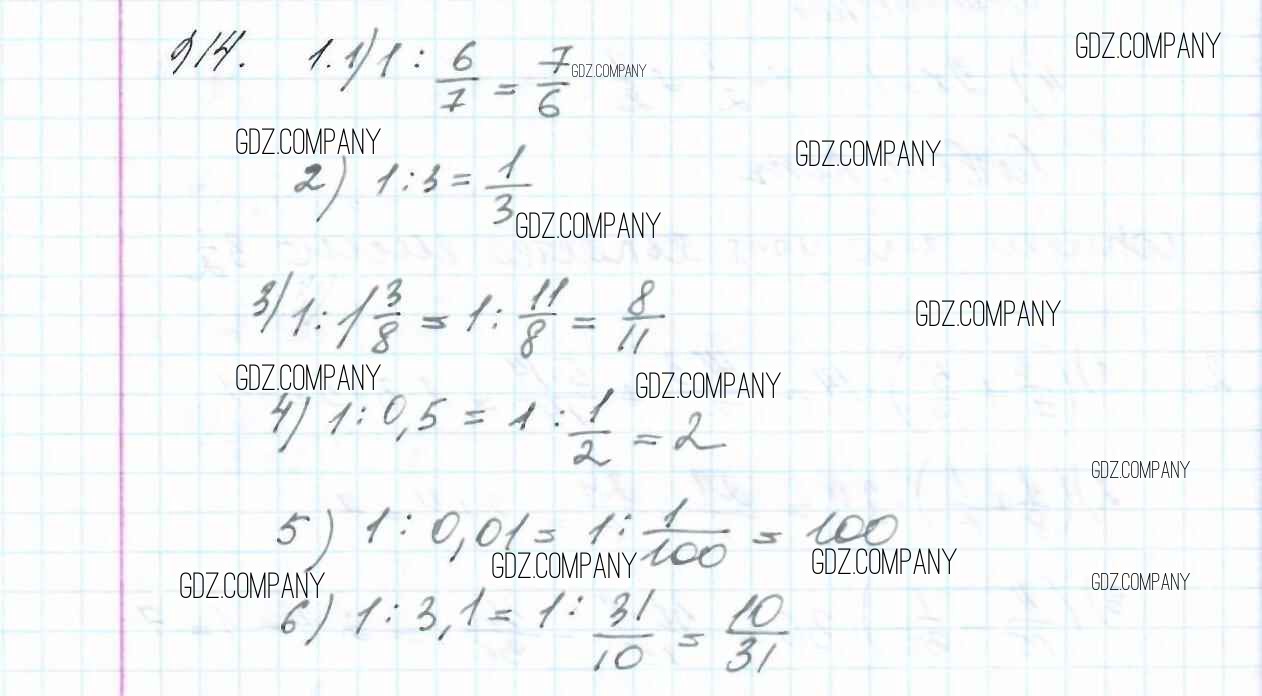 914. 1. 1) 1 : 6/7 = 7/6
GDZ.COMPANY
GDZ.COMPANY
GDZ.COMPANY
GDZ.COMPANY
2) 1 : 3 = 1/3
GDZ.COMPANY
3) 1 : 1 3/8 = 1 : 11/8 = 8/11
GDZ.COMPANY
GDZ.COMPANY
GDZ.COMPANY
4) 1 : 0,5 = 1 : 1/2 = 2
GDZ.COMPANY
5) 1 : 0,01 = 1 : 1/100 = 100
GDZ.COMPANY
GDZ.COMPANY
GDZ.COMPANY
GDZ.COMPANY
6) 1 : 3,1 = 1 : 31/10 = 10/31